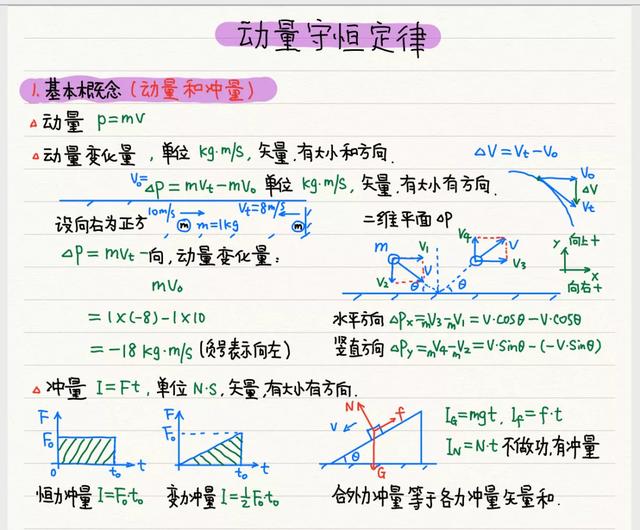 动量守恒定律
1. 基本概念 (动量和冲量)
△动量 p=mv
△动量变化量，单位 kg·m/s，矢量，有大小和方向.
ΔV=Vt-V₀
V₀=
10m/s
ΔP=mVt-mV₀ 单位 kg·m/s，矢量，有大小有方向.
V₀
ΔV
Vt
Vt=8m/s
m
m=1kg
m
设向右为正方
向，动量变化量：
ΔP=mVt-
mV₀
=1×(-8)-1×10
=-18kg·m/s (负号表示向左)
二维平面 ΔP
m
V₁
V₂
V
θ
θ
V₄
V
V₃
y 向上+
x
向右+
水平方向 ΔPx=mV₃-mV₁=V·cosθ-V·cosθ
竖直方向 ΔPy=mV₄-mV₂=V·sinθ-(-V·sinθ)
△冲量 I=Ft，单位 N·S，矢量，有大小有方向.
F
F₀
0
t₀
t
F
F₀
t₀
t
N
f
V
θ
G
I_G=mgt，I_f=f·t
I_N=N·t 不做功，有冲量
恒力冲量 I=F₀t₀
变力冲量 I=½F₀t₀
合外力冲量等于各力冲量矢量和.